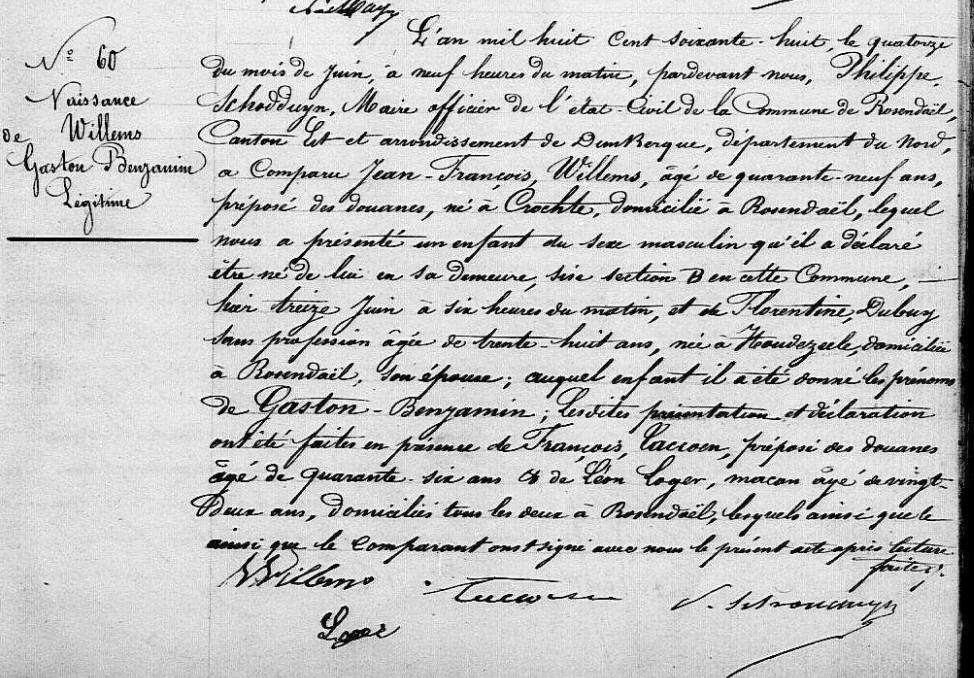 N° 60
Naissance
de Willems
Gaston Benjamin
Légitime
L'an mil huit Cent soixante-huit, le quatorze
du mois de Juin, à neuf heures du matin, pardevant nous, Philippe
Schodduyn, Maire officier de l'état-Civil de la Commune de Rosendaël,
Canton Est et arrondissement de Dunkerque, département du Nord,
a Comparu Jean-François, Willems, âgé de quarante-neuf ans,
préposé des douanes, né à Crochte, domicilié à Rosendaël, lequel
nous a présenté un enfant du sexe masculin qu'il a déclaré
être né de lui en sa demeure, sise section B en cette Commune,
hier treize Juin à six heures du matin, et de Florentine, Dubuy
sans profession âgée de trente-huit ans, née à Houdezeele, domiciliée
à Rosendaël, son épouse; auquel enfant il a été donné les prénoms
de Gaston-Benjamin; Lesdites présentation et déclaration
ont été faites en présence de François, Caccoen, préposé des douanes
âgé de quarante-six ans & de Léon Loger, maçon âgé de vingt-
deux ans, domiciliés tous les deux à Rosendaël, lesquels ainsi que le
ainsi que le Comparant ont signé avec nous le présent acte après lecture
faite.
Willems